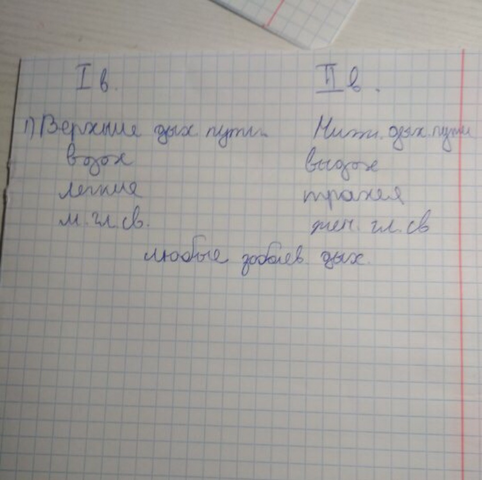 I в. II в.
1) Верхние дых. пути. Нижн. дых. пути
вдох выдох
легкие трахея
м. гл. св. жен. гл. св
любые забол дых.